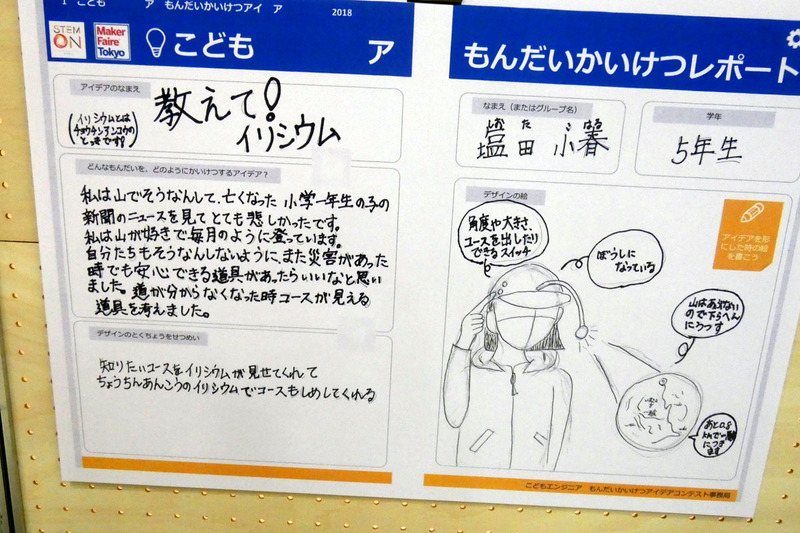 もんだいかいけつアイ
2018
STEM
ON
Maker
Faire
Tokyo
こども
ア
アイデアのなまえ
教えて!
イリシウム
(イリシウムとは
チョウチンアンコウの
とっきです!)
どんなもんだいを、どのようにかいけつするアイデア?
私は山でそうなんして、亡くなった小学一年生の子の
新聞のニュースを見てとても悲しかったです。
私は山が好きで毎月のように登っています。
自分たちもそうなんしないように、また災害があった
時でも安心できる道具があったらいいなと思い
ました。道が分からなくなった時コースが見える
道具を考えました。
デザインのとくちょうをせつめい
知りたいコースをイリシウムが見せてくれて
ちょうちんあんこうのイリシウムでコースもしめしてくれる
もんだいかいけつレポート
なまえ(またはグループ名)
しお た こ はる
塩田 小春
学年
5年生
デザインの絵
アイデアを形
にした時の絵
を書こう
角度や大きさ、
コースを出したり
できるスイッチ
ぼうしに
なっている
ので下らへん
にうつす
あと0.8
につき
ます
こどもエンジニア もんだいかいけつアイデアコンテスト事務局